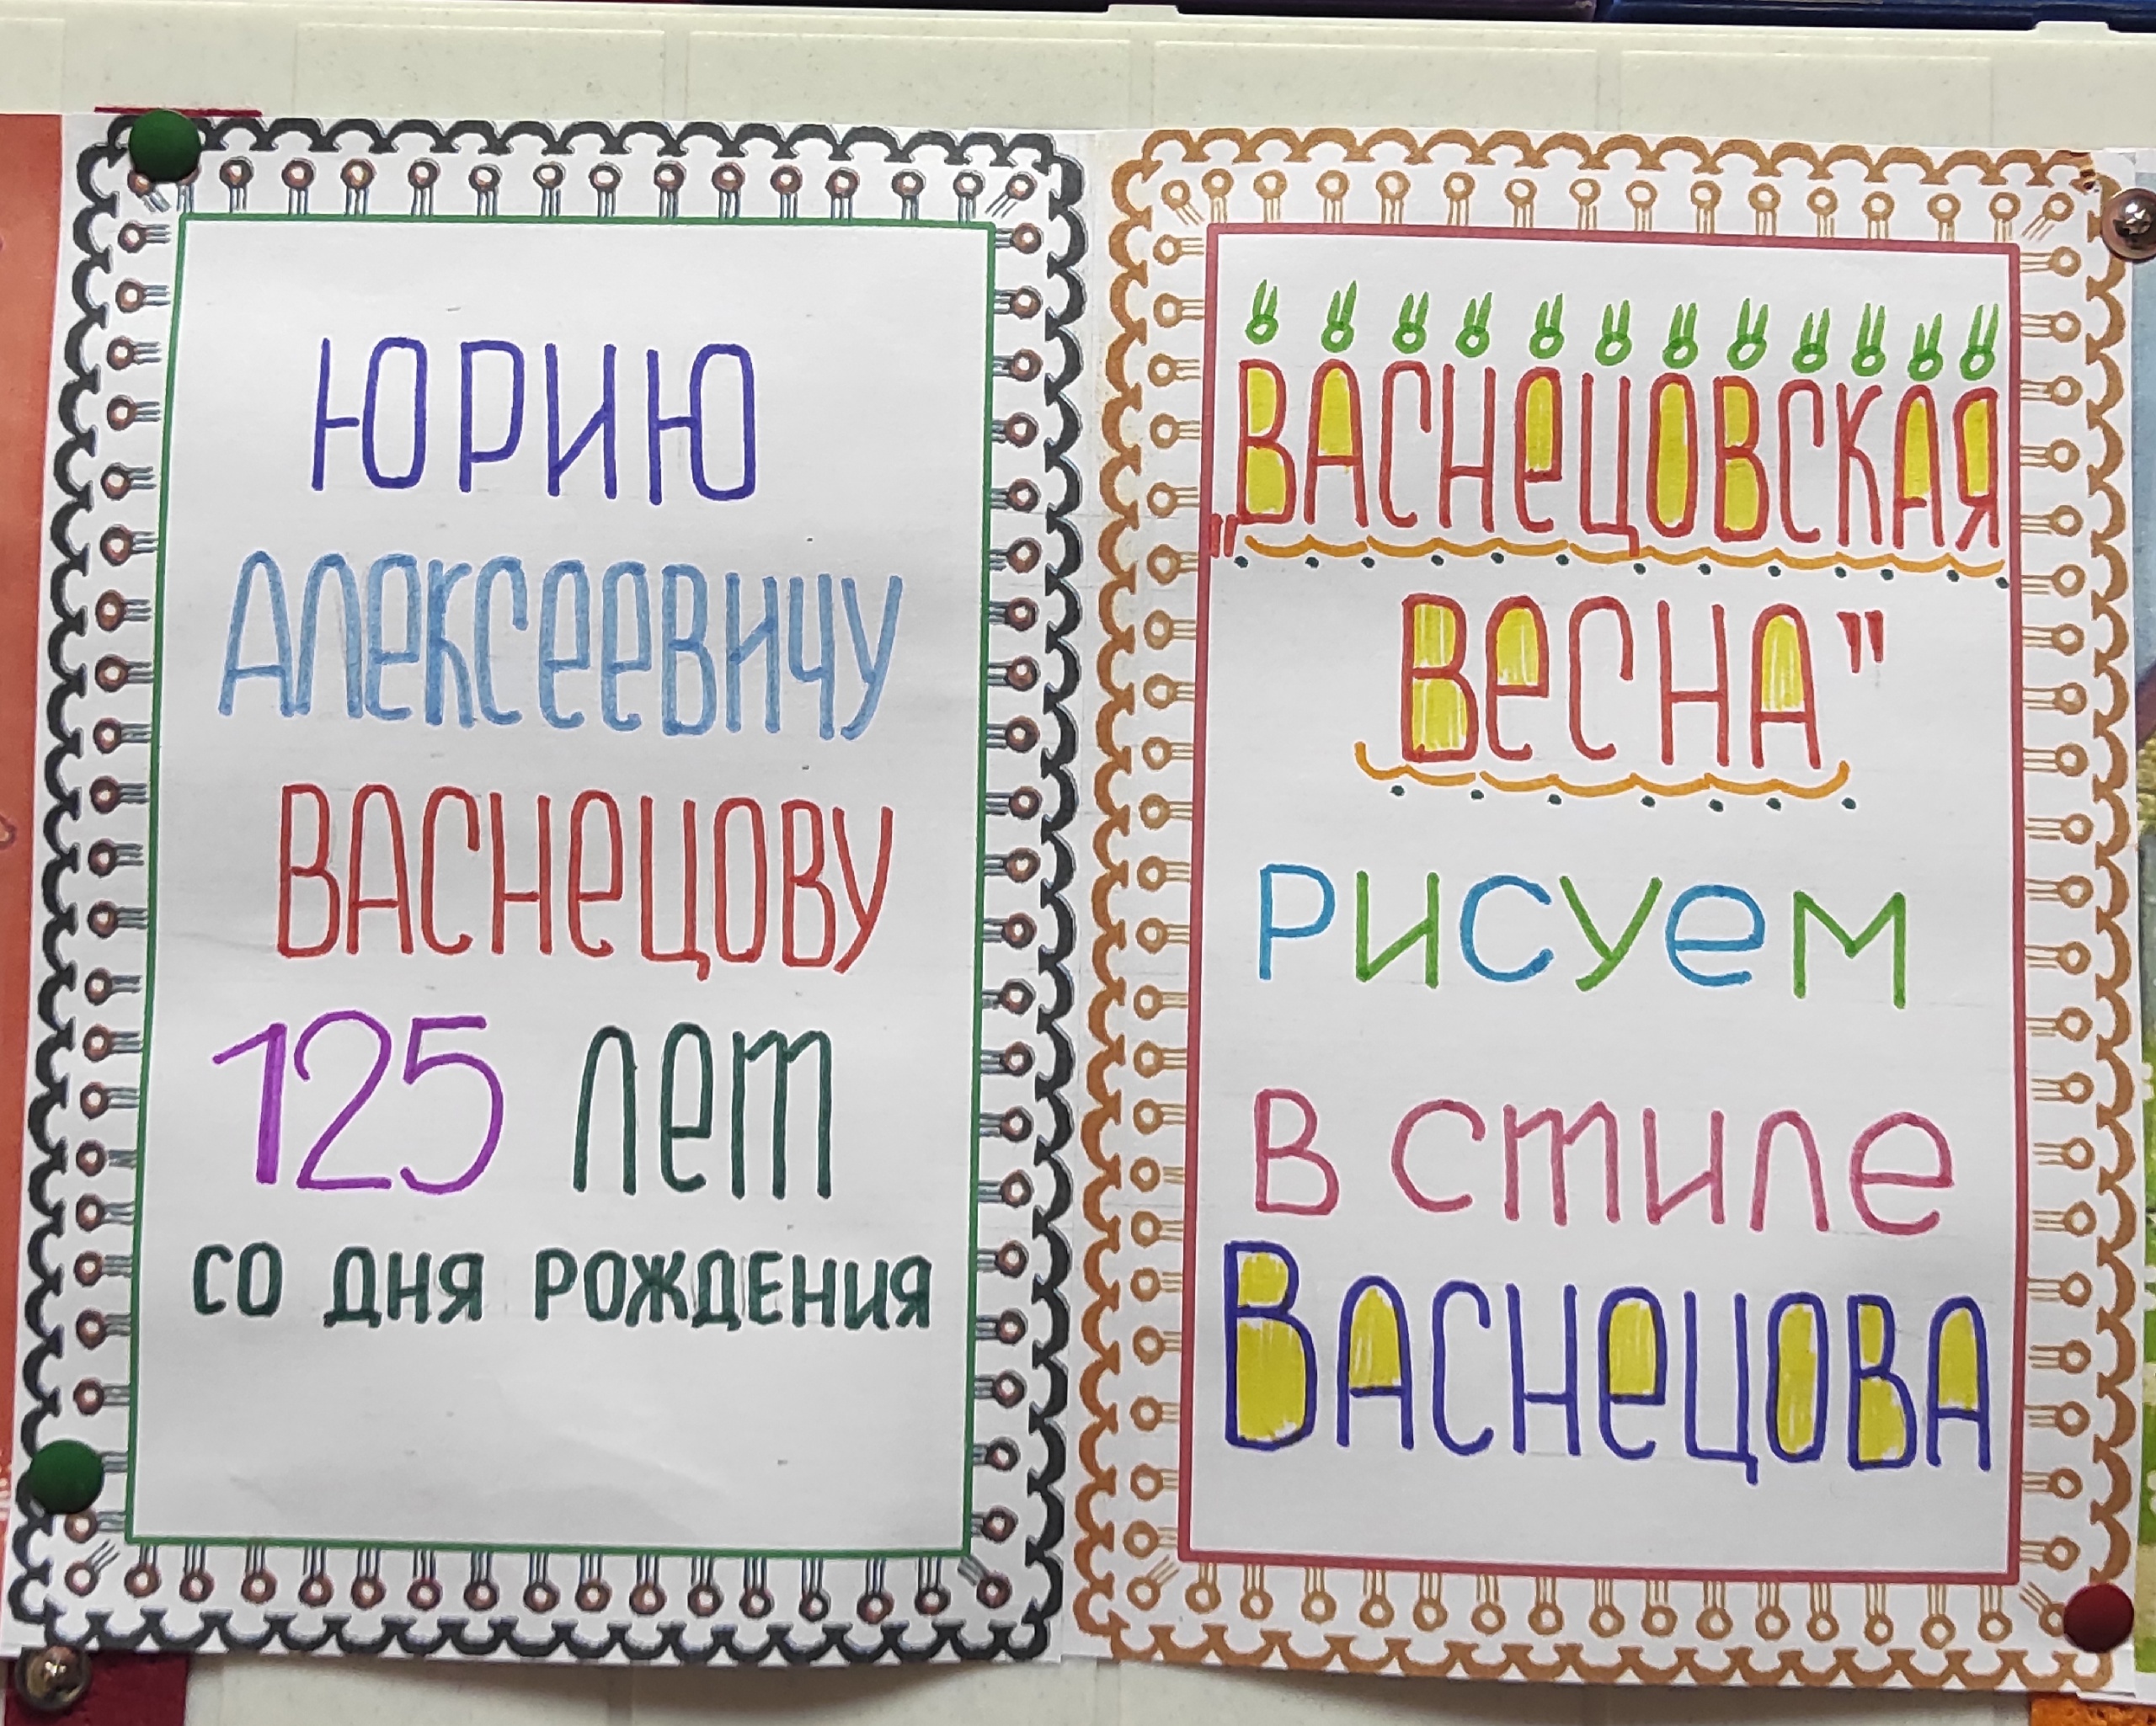 ЮРИЮ
АЛЕКСЕЕВИЧУ
ВАСНЕЦОВУ
125 лет
СО ДНЯ РОЖДЕНИЯ
„ВАСНЕЦОВСКАЯ
ВЕСНА"
рисуем
в стиле
ВАСНЕЦОВА